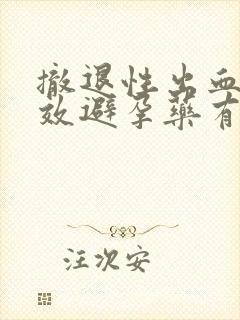 撤退性出血
效避孕药有
汪次安